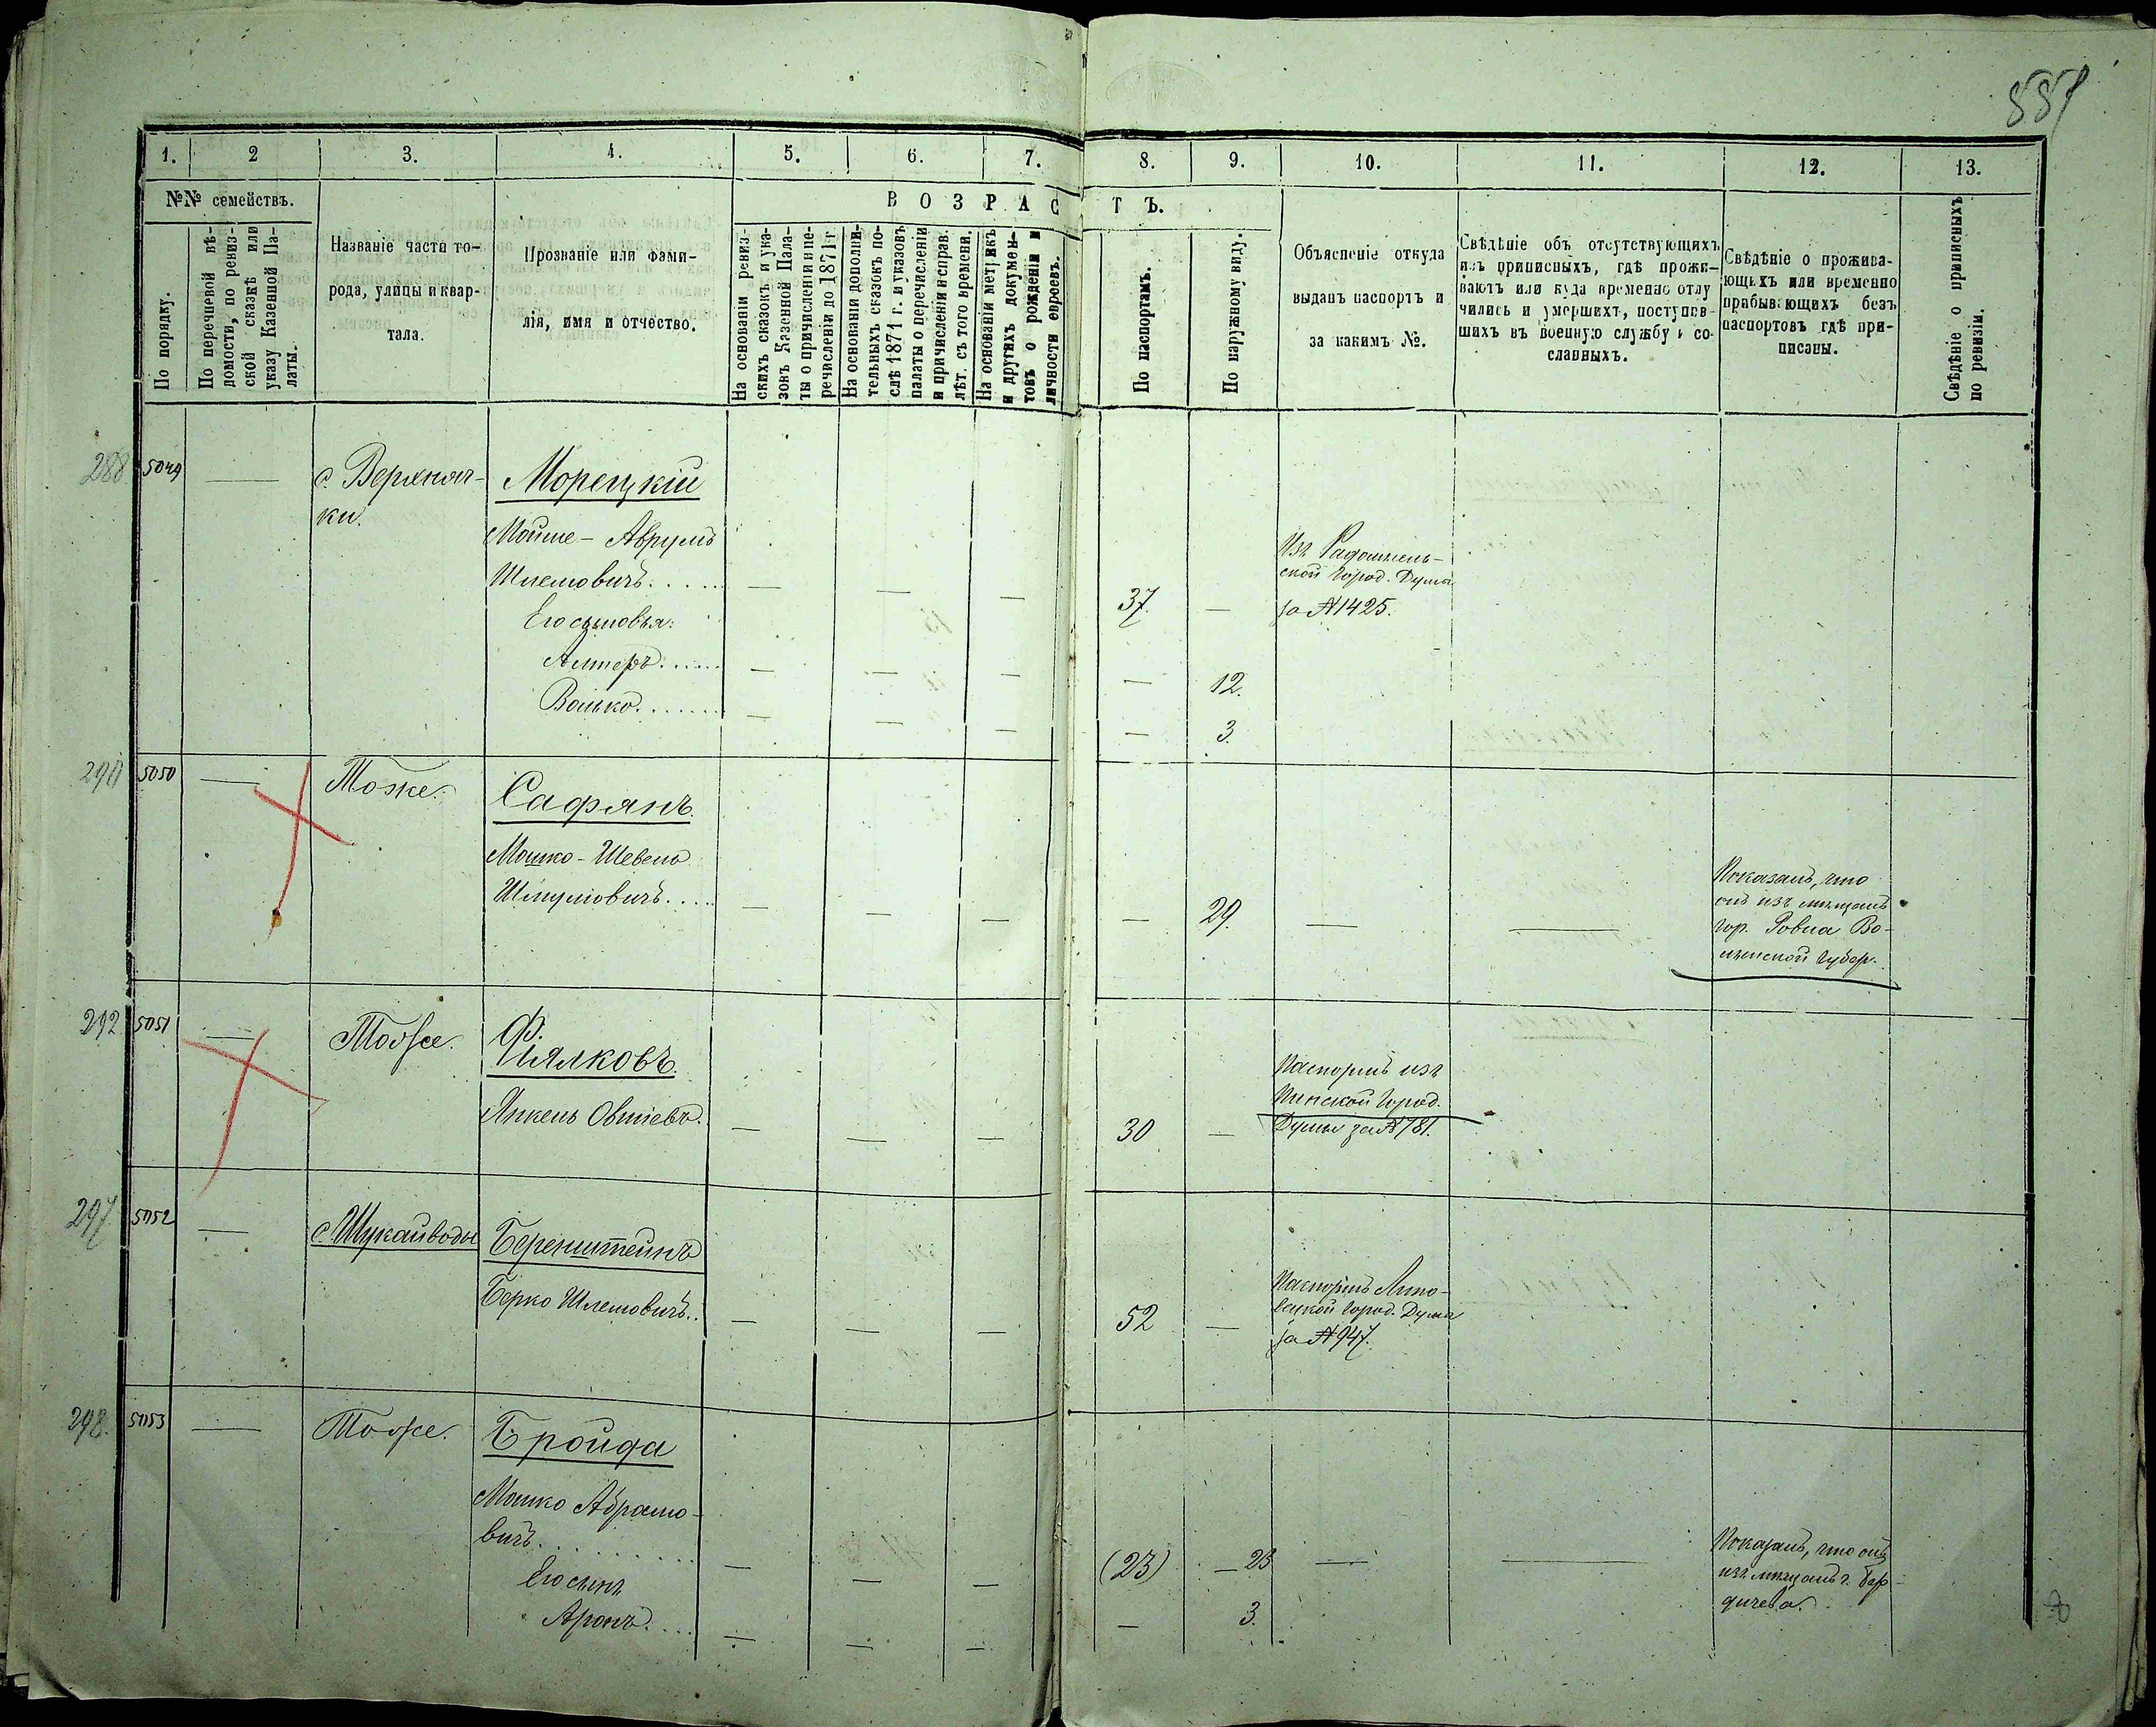 559
1. 2 3. 4. 5. 6. 7. 8. 9. 10. 11. 12. 13.
№№ семействъ.
По порядку.
По перечневой вѣ-
домости, по ревиз-
ской сказкѣ или
указу Казенной Па-
латы.
Названіе части го-
рода, улицы и квар-
тала.
Прозваніе или фами-
лія, имя и отчество.
ВОЗРАСТЪ.
На основаніи ревиз-
скихъ сказокъ и ука-
зовъ Казенной Пала-
ты о причисленіи и пе-
речисленіи до 1871 г.
На основаніи дополни-
тельныхъ сказокъ по-
слѣ 1871 г. и указовъ
палаты о перечисленіи
и причисленіи и справ.
лѣт. съ того времени.
На основаніи метрикъ
и другихъ докумен-
товъ о рожденіи и
личности евреевъ.
По паспортамъ.
По наружному виду.
Объясненіе откуда
выданъ паспортъ и
за какимъ №.
Свѣдѣніе объ отсутствующихъ
изъ приписныхъ, гдѣ прожи-
ваютъ или куда временно отлу
чились и умершихъ, поступив-
шихъ въ военную службу и со-
сланныхъ.
Свѣдѣніе о прожива-
ющихъ или временно
прибывающихъ безъ
паспортовъ гдѣ при-
писаны.
Свѣдѣніе о приписныхъ
по ревизіи.
288 5049 — с. Верхняч-
ки.
Морецкій
Мойше - Аврумъ
Шлемовичъ. . . . . — — — 37. —
Изъ Радомысль-
ской Город. Думы
за №1425.
Его сыновья:
Алтеръ. . . . . . — — — — 12.
Волько. . . . . . . — — — — 3.
290 5050 — Тоже.
Сафянъ.
Мошко - Шевель
Шмуловичъ. . . . — — — — 29. — —
Показалъ, что
онъ изъ мѣщанъ
гор. Ровна Во-
лынской Губер.
292 5051 — Тоже.
Фіялковъ.
Янкель Овшіевъ. — — — 30 —
Паспортъ изъ
Пинской Город.
Думы за №781.
297. 5052 — с. Шукайводы
Беренштейнъ
Берко Шлемовичъ. . — — — 52 —
Паспортъ Липо-
вецкой Город. Думы
за №947.
298. 5053 — Тоже.
Бройда
Мошко Абрамо-
вичъ. . . . . . . . . . — — — (23) — 23 — —
Показалъ, что онъ
изъ мѣщанъ г. Бер-
дичева.
Его сынъ
Аронъ. . . . — — — — 3.